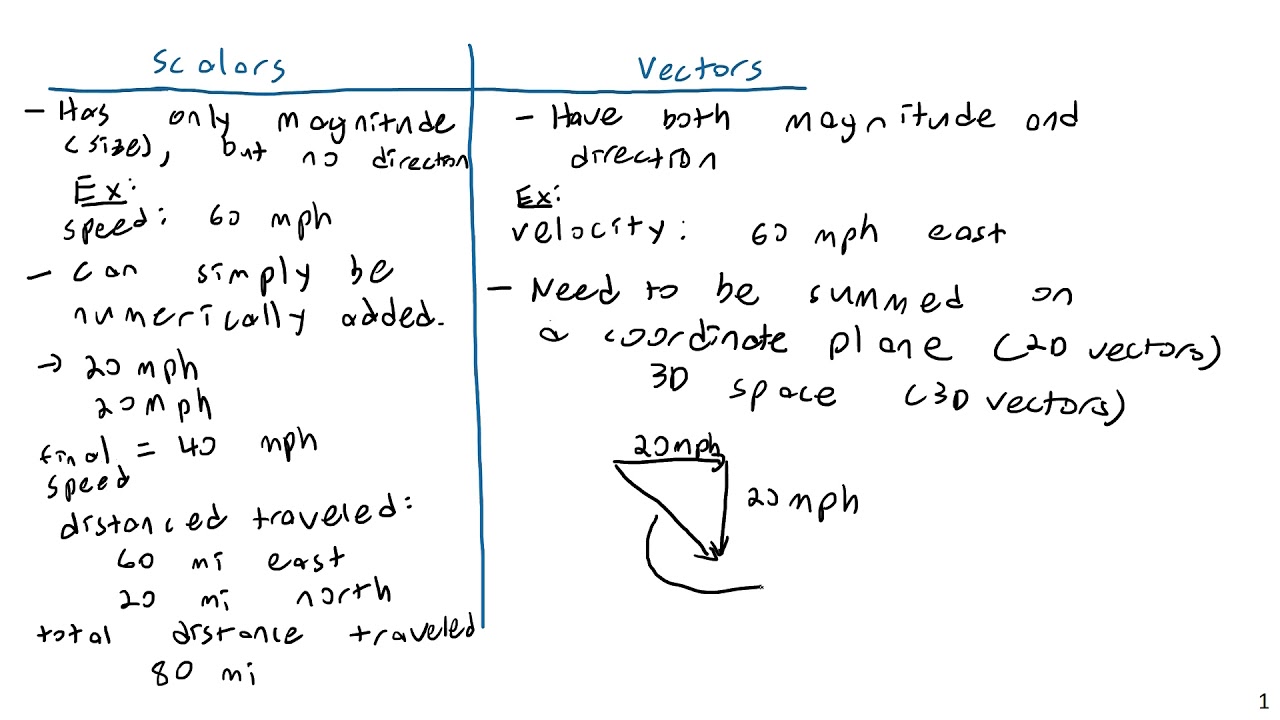 Scalars
- Has only magnitude
(size), but no direction
Ex:
speed: 60 mph
- Can simply be
numerically added.
→ 20 mph
20 mph
final = 40 mph
speed
distanced traveled:
60 mi east
20 mi north
total distance traveled
80 mi
Vectors
- Have both magnitude and
direction
Ex:
velocity: 60 mph east
- Need to be summed on
a coordinate plane (2D vectors)
3D space (3D vectors)
20 mph
20 mph
1